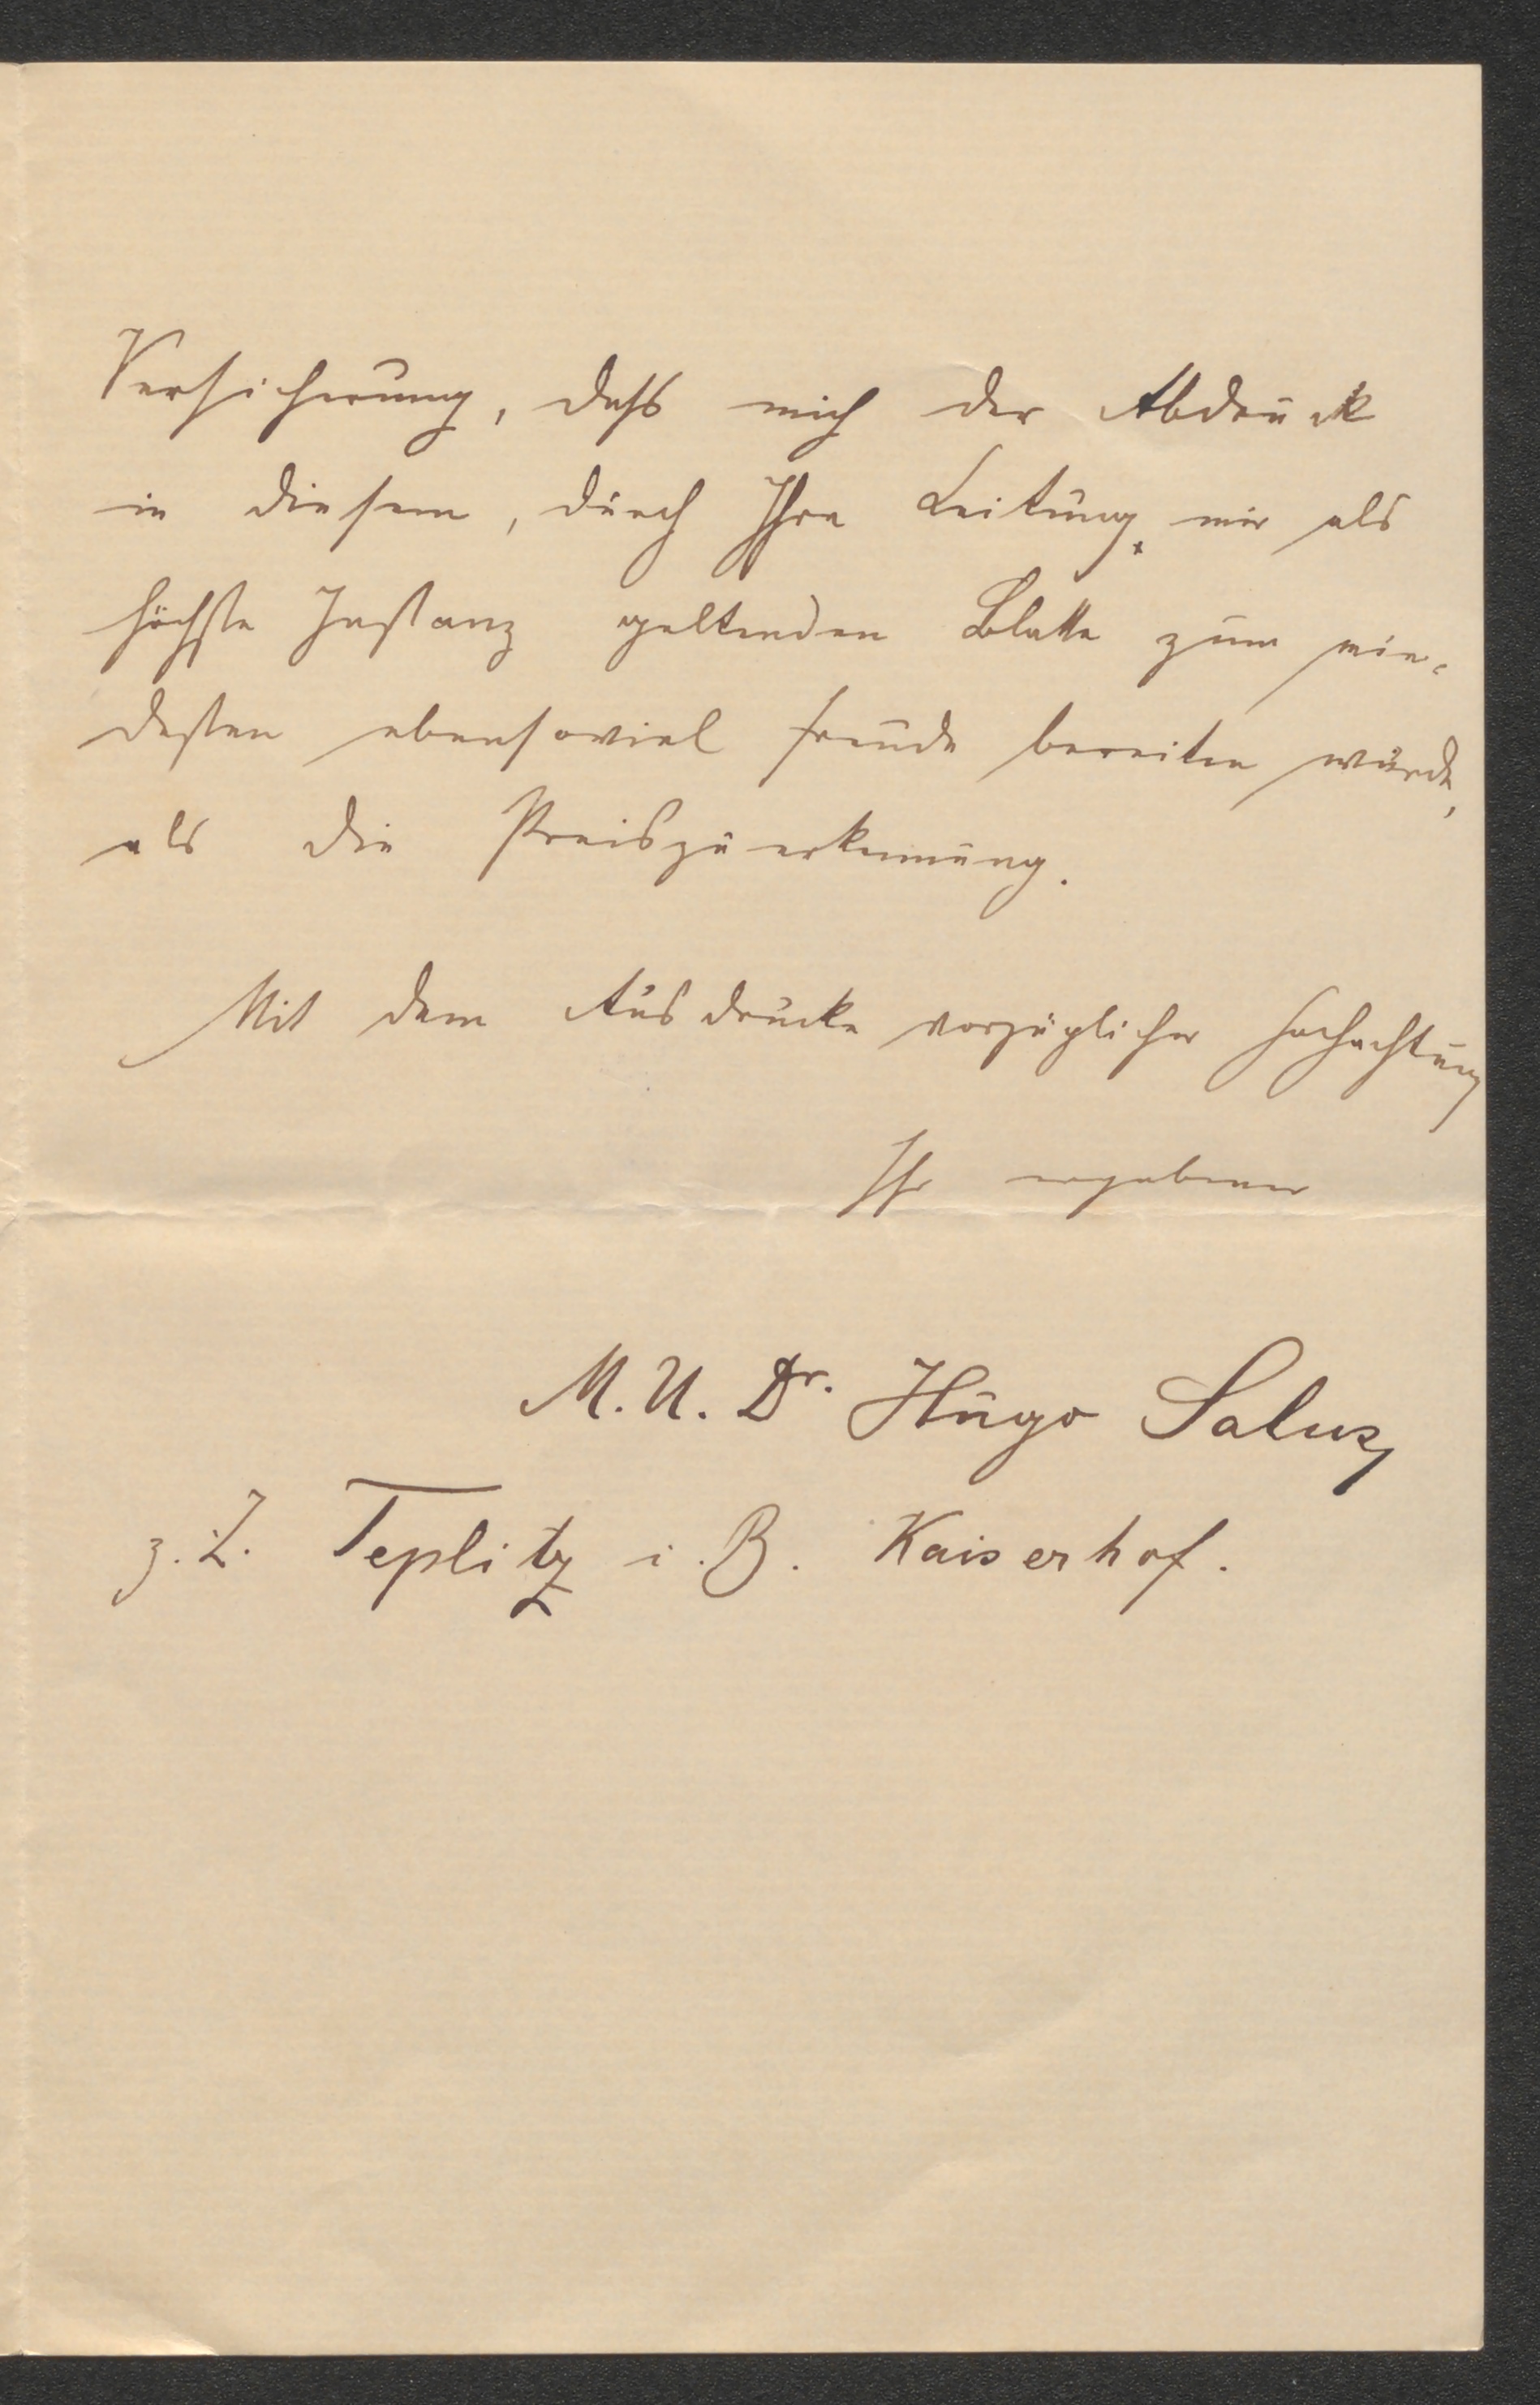 Versicherung, dass mich der Abdruck
in diesem, durch Ihre Leitung, mir als
höchste Instanz geltenden Blatte zum min-
desten ebensoviel Freude bereiten würde,
als die Preiszuerkennung.
Mit dem Ausdrucke vorzüglicher Hochachtung
Ihr ergebener
M. U. Dr. Hugo Salus,
z. Z. Teplitz i. B. Kaiserhof.